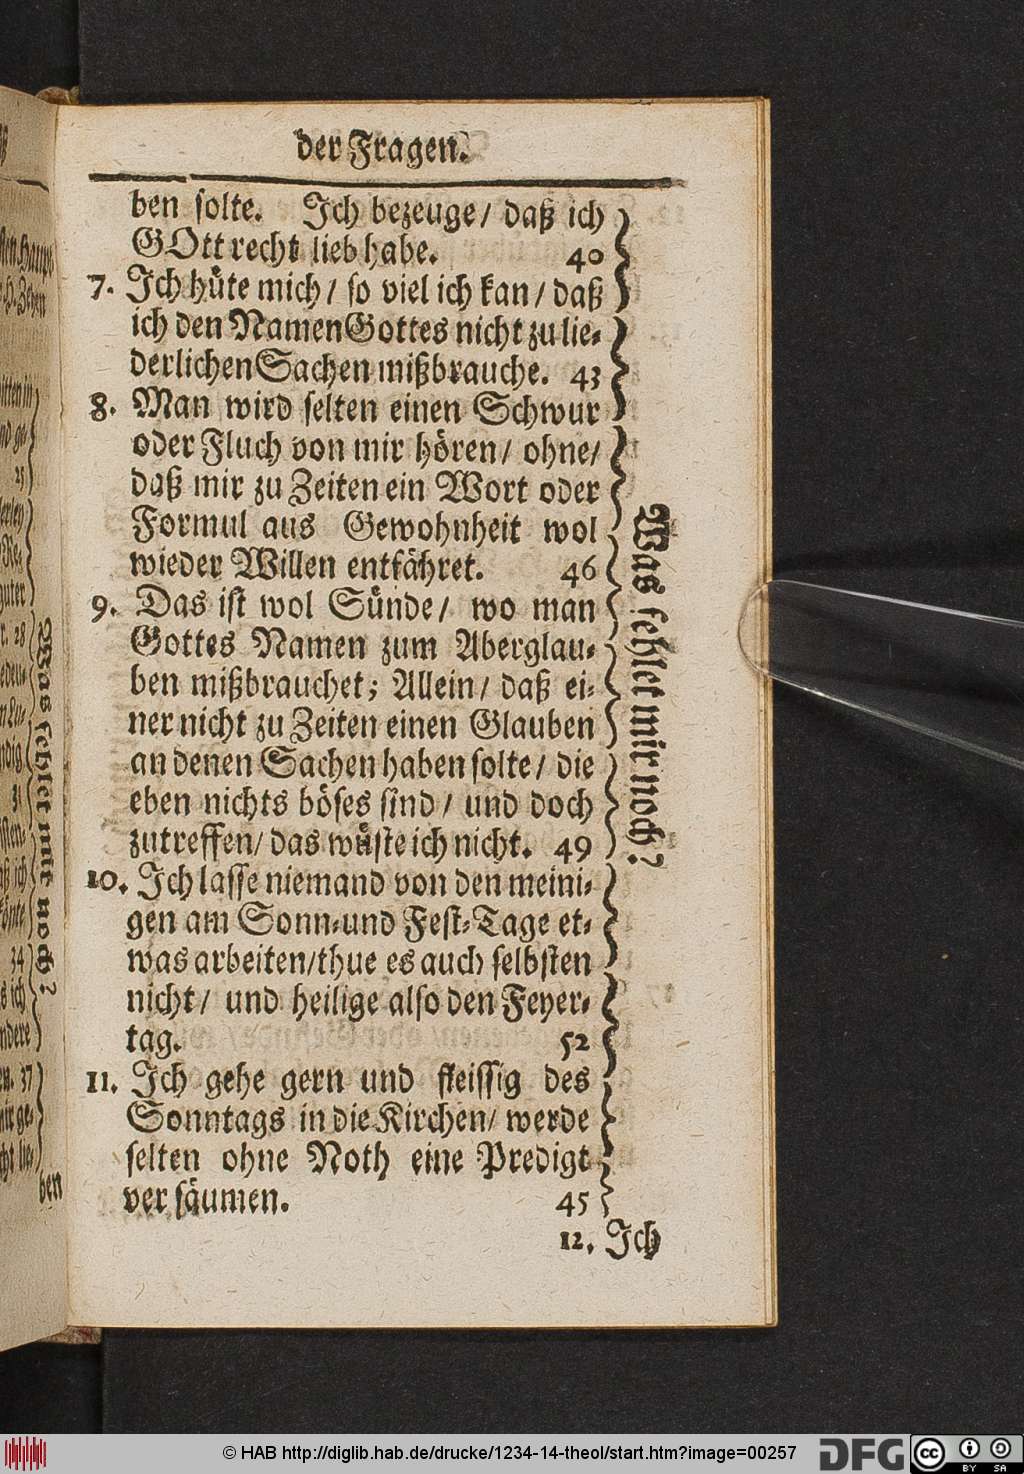 der Fragen.
ben solte. Ich bezeuge/ daß ich
GOtt recht lieb habe. 40
7. Ich hüte mich/ so viel ich kan/ daß
ich den Namen Gottes nicht zu lie-
derlichen Sachen mißbrauche. 43
8. Man wird selten einen Schwur
oder Fluch von mir hören/ ohne/
daß mir zu Zeiten ein Wort oder
Formul aus Gewohnheit wol
wieder Willen entfähret. 46
9. Das ist wol Sünde/ wo man
Gottes Namen zum Aberglau-
ben mißbrauchet; Allein/ daß ei-
ner nicht zu Zeiten einen Glauben
an denen Sachen haben solte/ die
eben nichts böses sind/ und doch
zutreffen/ das wüste ich nicht. 49
10. Ich lasse niemand von den meini-
gen am Sonn- und Fest-Tage et-
was arbeiten/ thue es auch selbsten
nicht/ und heilige also den Feyer-
tag. 52
11. Ich gehe gern und fleissig des
Sonntags in die Kirchen/ werde
selten ohne Noth eine Predigt
versäumen. 45
12. Ich
Was fehlet mir noch?
Was fehlet mir noch?
ben
© HAB http://diglib.hab.de/drucke/1234-14-theol/start.htm?image=00257
DFG
cc BY SA